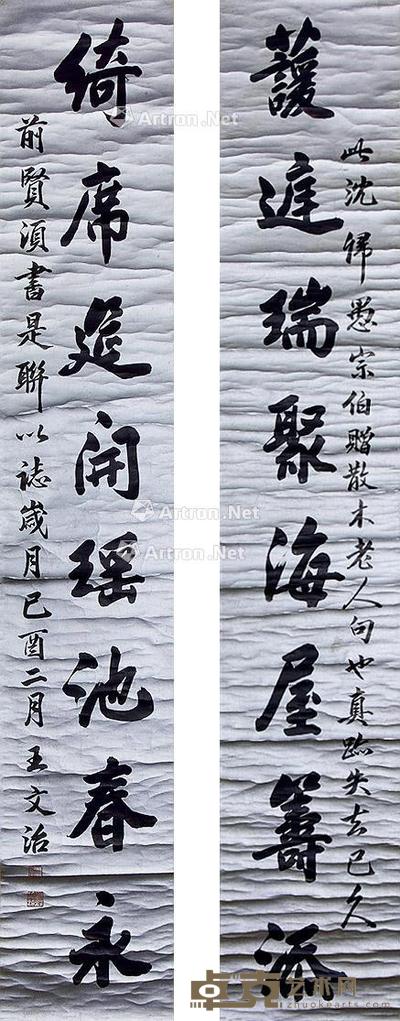 蘐庭瑞聚海屋籌添
此沈歸愚宗伯贈散木老人句也真跡失去已久
綺席延開瑶池春永
前賢湏書是聯以誌歲月己酉二月王文治
Artron.Net
Artron.Net
Artron.Net
Artron.Net
卓克艺术网
zhuokearts.com